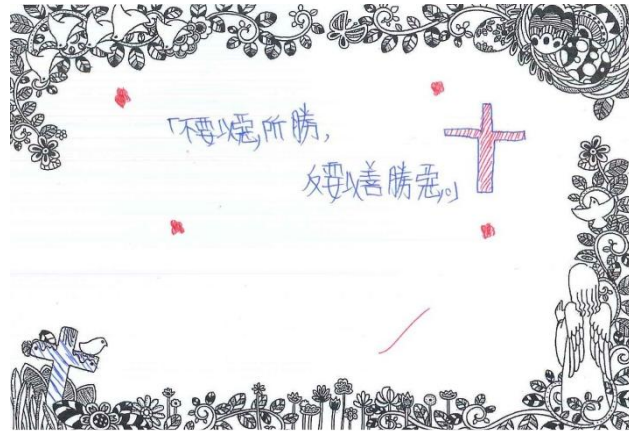 「不要以惡所勝,
反要以善勝惡。」